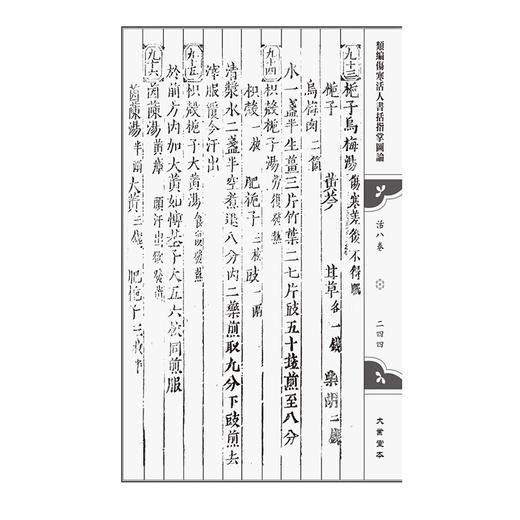 類編傷寒活人書括指掌圖論
活八卷
二四四
大業堂本
九十三 梔子烏梅湯 傷寒差後不得眠
梔子 黃芩 甘草各一錢 柴胡二錢
烏梅肉二箇
水一盞半生薑三片竹葉二七片豉五十粒煎至八分
九十四 枳殼梔子湯 勞復發熱
枳殼一枚 肥梔子三枚 豉一兩
清漿水二盞半空煮退八分內二藥煎取九分下豉煎去
滓服覆令汗出
九十五 枳殼梔子大黃湯 食復發熱
於前方內加大黃如博碁子大五六枚同前服
九十六 茵蔯湯 黃疸 頭汗出欲發黃
茵蔯湯半兩 大黃三錢 肥梔子三枚半